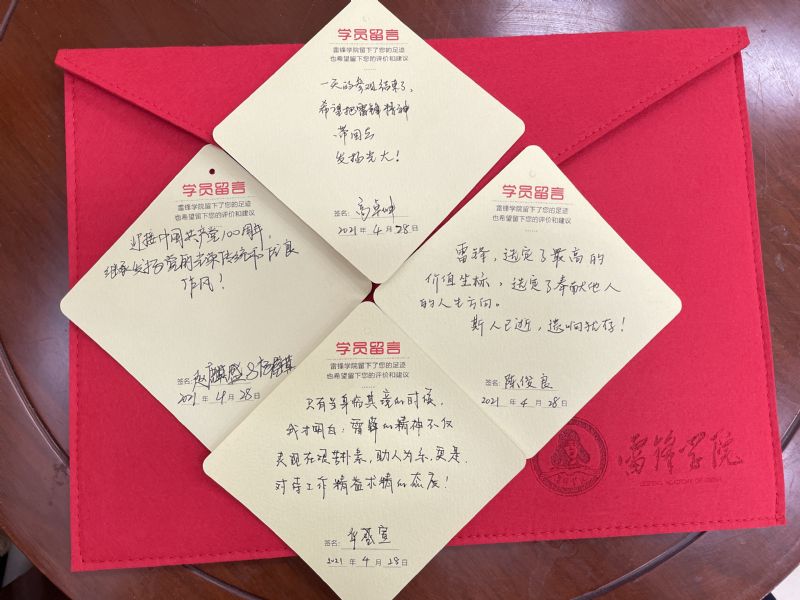 学员留言
雷锋学院留下了您的足迹
也希望留下您的评价和建议
一天的参观结束了,
希望把雷锋精神
带回去
发扬光大!
签名: 高卓坤
2021 年 4 月 28 日
学员留言
雷锋学院留下了您的足迹
也希望留下您的评价和建议
迎接中国共产党100周年,
继承发扬党的光荣传统和优良
作风!
签名:
2021 年 4 月 28 日
学员留言
雷锋学院留下了您的足迹
也希望留下您的评价和建议
雷锋,选定了最高的
价值坐标,选定了奉献他人
的人生方向。
斯人已逝,遗响犹存!
签名: 陈俊良
2021 年 4 月 28 日
学员留言
雷锋学院留下了您的足迹
也希望留下您的评价和建议
只有当身临其境的时候,
我才明白:雷锋的精神不仅
表现在艰苦朴素,助人为乐,更是
对待工作精益求精的态度!
签名: 盛宣
2021 年 4 月 28 日
雷锋学院
LEIFENG ACADEMY OF CHINA